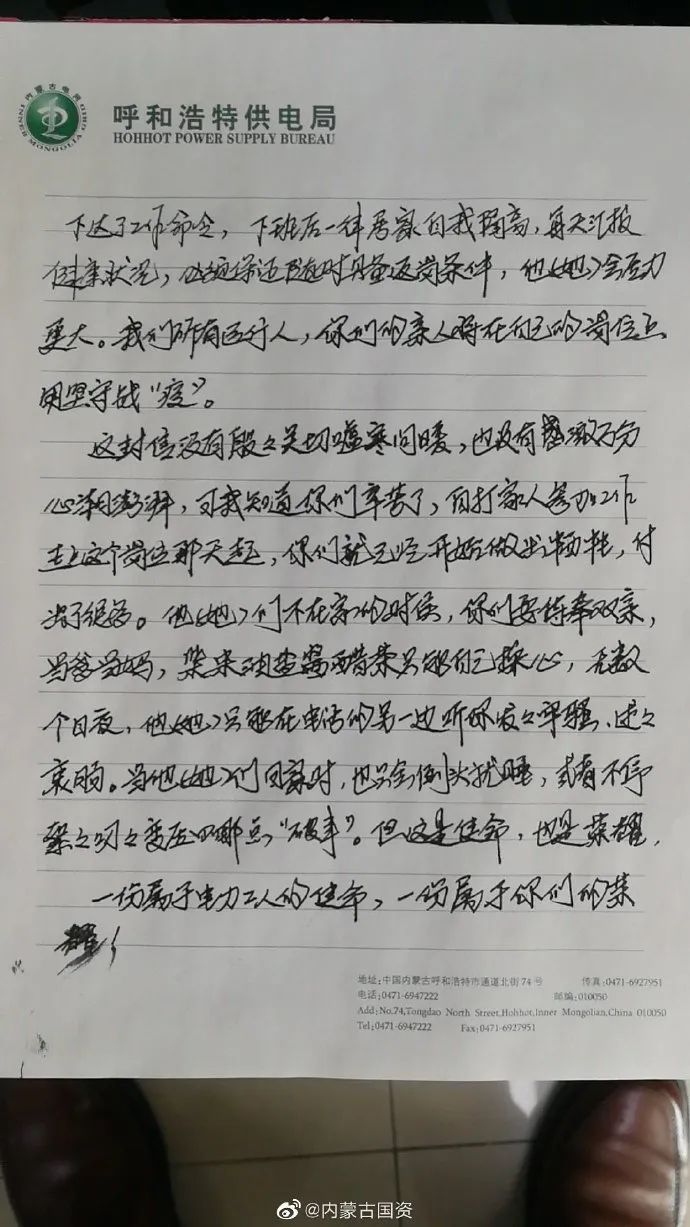 内蒙古电力
INNER MONGOLIA
呼和浩特供电局
HOHHOT POWER SUPPLY BUREAU
下达了工作命令，下班后一律居家自我隔离，每天汇报
健康状况，必须保证随时具备返岗条件，他（她）会压力
更大。我们所有运行人，你们的亲人将在自己的岗位上
用坚守战“疫”。
这封信没有殷々关切嘘寒问暖，也没有感激万分
心潮澎湃，可我知道你们辛苦了，自打家人参加工作
在这个岗位那天起，你们就已经开始做出牺牲，付
出了很多。他（她）们不在家的时候，你们要侍奉双亲，
当爸当妈，柴米油盐酱醋茶只能自己操心，无数
个日夜，他（她）只能在电话的另一边听你发々牢骚、述々
衷肠。当他（她）们回家时，也只会倒头就睡，或者不停
絮々叨々变压器那点“破事”。但这是使命，也是荣耀，
一份属于电力工人的使命，一份属于你们的荣
耀！
地址:中国内蒙古呼和浩特市通道北街74号 传真:0471-6927951
电话:0471-6947222 邮编:010050
Add:No.74,Tongdao North Street,Hohhot,Inner Mongolian,China 010050
Tel:0471-6947222 Fax:0471-6927951
@内蒙古国资